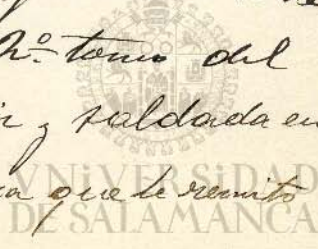 2º tomo del
y saldada en
que le remito
VNiVERSiDAD
DE SALAMANCA